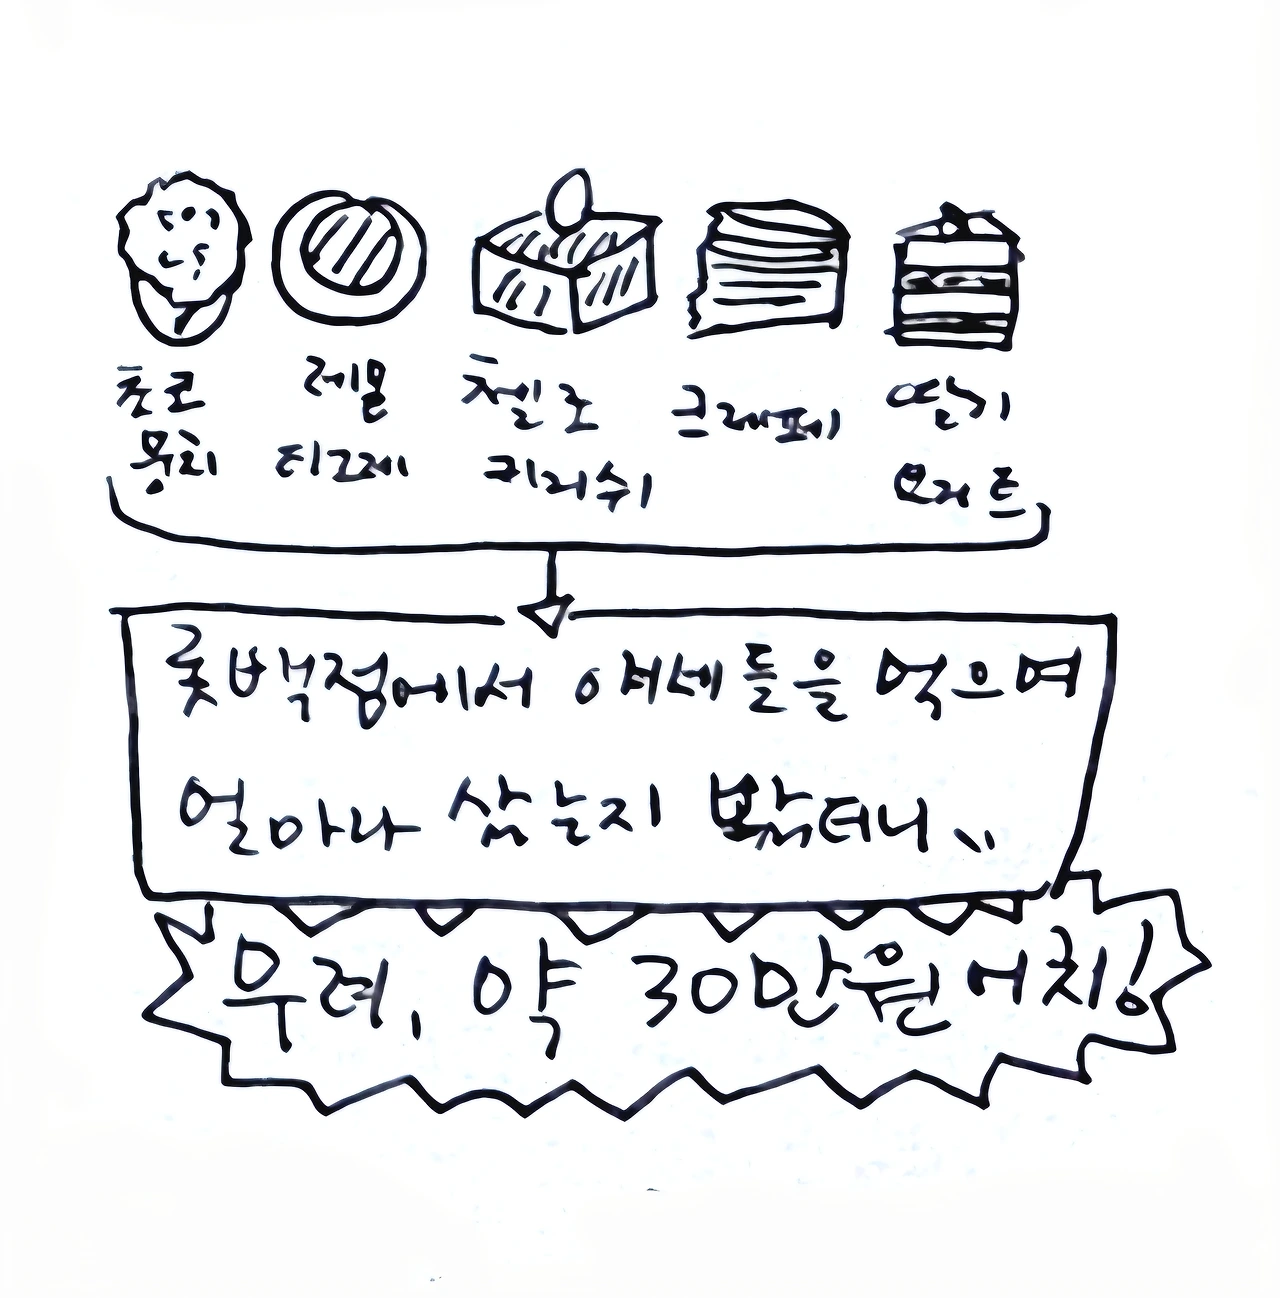 초코
뭉치
레몬
티그레
첼로
키리쉬
크레페
딸기
요거트
롯백점에서 얘네들을 먹으며
얼마나 샀는지 봤더니..
무려, 약 30만원어치!